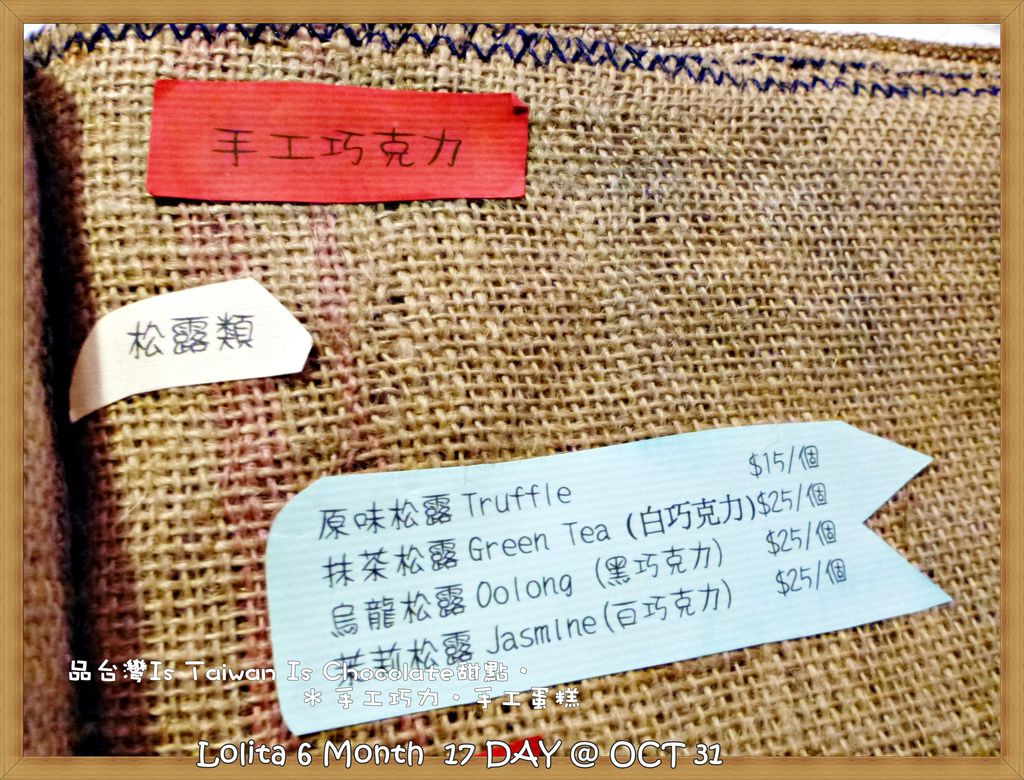 手工巧克力
松露類
原味松露 Truffle $15/個
抹茶松露 Green Tea (白巧克力) $25/個
烏龍松露 Oolong (黑巧克力) $25/個
茉莉松露 Jasmine(白巧克力) $25/個
品台灣Is Taiwan Is Chocolate甜點。
＊手工巧力。手工蛋糕
Lolita 6 Month 17 DAY @ OCT 31